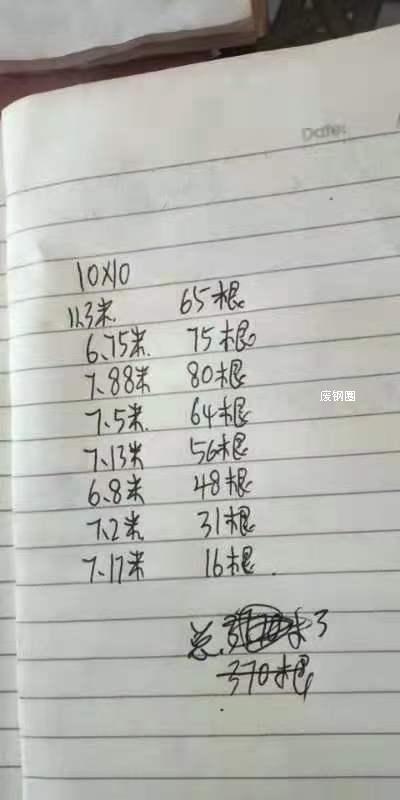 Date:
10×10
11.3米 65根
6.75米 75根
7.88米 80根
7.5米 64根
7.13米 56根
6.8米 48根
7.2米 31根
7.17米 16根
废钢圈
总
370根